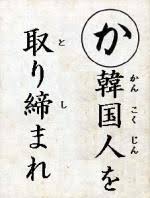 か 韓国人を
かんこくじん
取り締まれ
とし